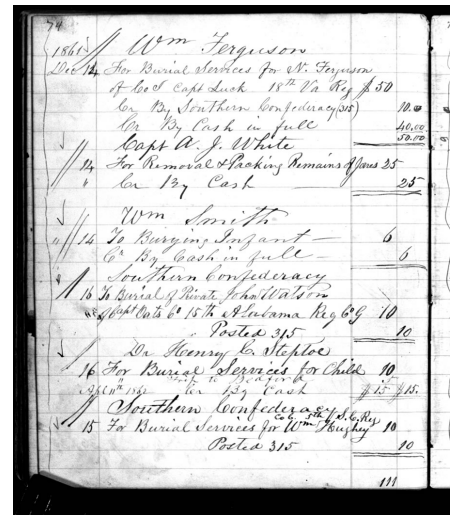 74
1861 Wm Ferguson
Dec 14 For Burial Services for N. Ferguson
of Co S Capt Luck 18th Va Reg $50
Cr By Southern Confederacy (315) 10.00
Cr By Cash in full 40.00
50.00
Capt A. J. White
14 For Removal & Packing Remains of 25
" Cr By Cash 25
Wm Smith
" 14 To Burying Infant 6
" Cr By Cash in full 6
" Southern Confederacy
16 To Burial of Private John Watson
of Capt Cato Co 15th Alabama Reg Co G 10
Posted 315 10
Dr Henry C. Steptoe
16 For Burial Services for Child 10
Trip to
Apl 11th 1862 Cr By Cash $15 $15.
Southern Confederacy
Col 5th S.C. Reg
15 For Burial Services for Wm Hughey 10
Posted 315 10
111